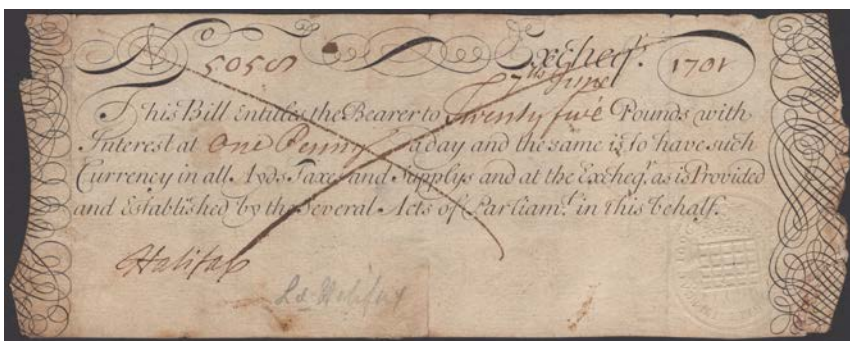 No 5058 Ye Excheqr. 1701
7th June
This Bill entitles the Bearer to Twenty five Pounds with
Interest at One Penny a day and the same is to have such
Currency in all Ayds Taxes and Supplys and at the Excheqr. as is Provided
and Established by the Several Acts of Parliamt. in this behalf.
Halifax
Ld Halifax